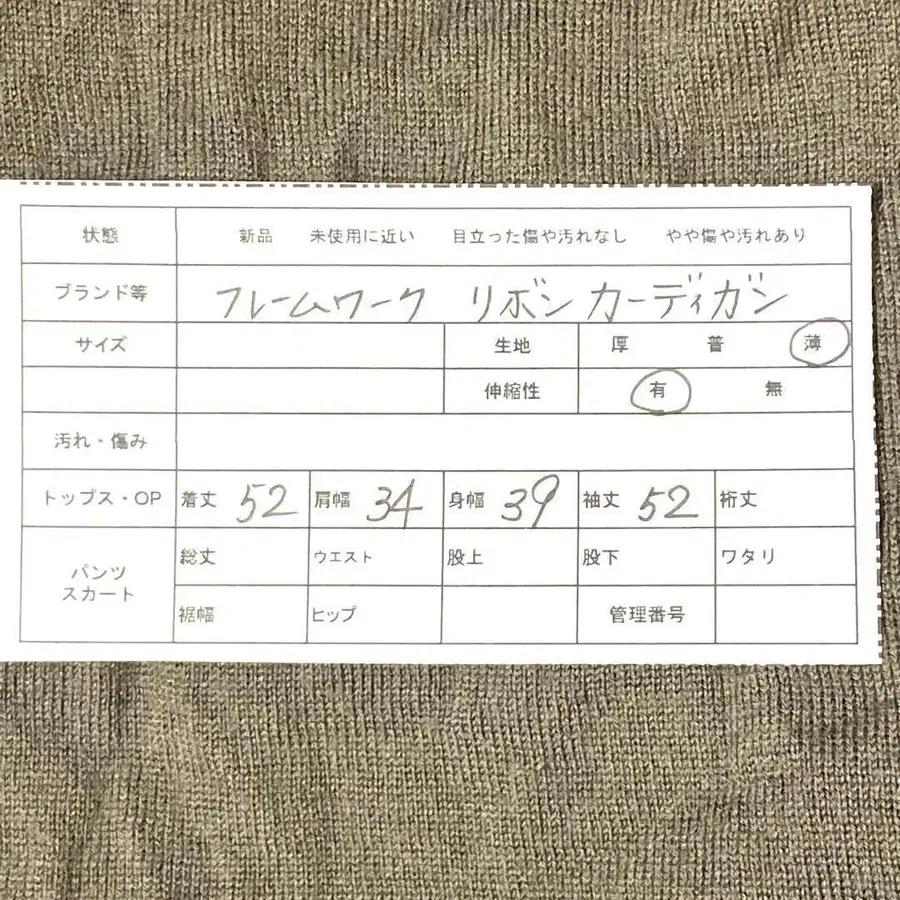 状態 新品 未使用に近い 目立った傷や汚れなし やや傷や汚れあり
ブランド等 フレームワーク リボンカーディガン
サイズ 生地 厚 普 薄
伸縮性 有 無
汚れ・傷み
トップス・OP 着丈 52 肩幅 34 身幅 39 袖丈 52 裄丈
パンツ スカート 総丈 ウエスト 股上 股下 ワタリ
裾幅 ヒップ 管理番号